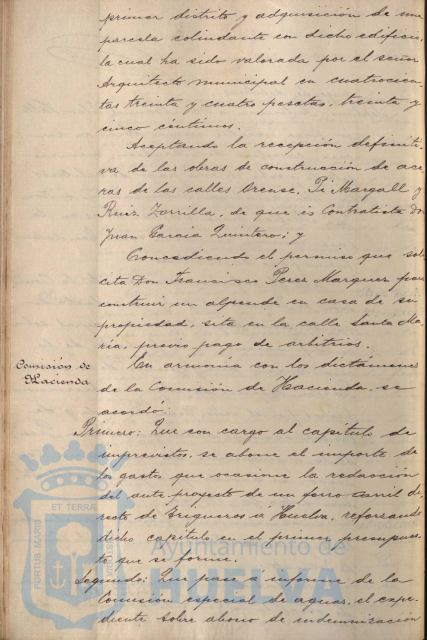 primer distrito y adquisición de una
parcela colindante con dicho edificio,
la cual ha sido valorada por el señor
Arquitecto municipal en cuatrocien-
tas treinta y cuatro pesetas, treinta y
cinco céntimos.
Aceptando la recepción definiti-
va de las obras de construcción de ace-
ras de las calles Orense, Pí Margall y
Ruiz Zorrilla, de que es Contratista Don
Juan García Quintero; y
Concediendo el permiso que soli-
cita Don Francisco Perez Marquez para
construir un alpende en casa de su
propiedad, sita en la calle Santa Ma-
ría, previo pago de arbitrios.
Comisión de
Hacienda
En armonía con los dictámenes
de la Comisión de Hacienda, se
acordó:
Primero: Que con cargo al capítulo de
imprevistos, se abone el importe de
los gastos que ocasione la redacción
del ante proyecto de un ferro carril di-
recto de Trigueros á Huelva, reforzando
dicho capítulo en el primer presupues-
to que se forme.
Segundo: Que pase a informe de la
Comisión especial de aguas, el expe-
diente sobre abono de indemnización
PORTUS MARIS ET TERRAE
Ayuntamiento de
HUELVA